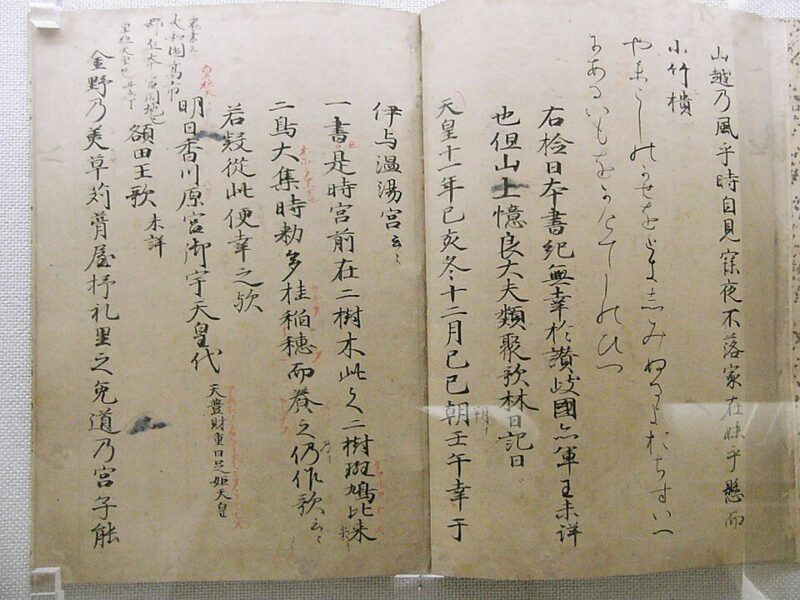 山越乃風乎時自見寐夜不落家在妹乎懸而
小竹樻
やまこしのかせをときしみぬるよおちすいへ
にあるいもをかけてしのひつ
右撿日本書紀無幸於讃岐國亦軍王未詳
也但山上憶良大夫類聚歌林曰記曰
天皇十一年己亥冬十二月己巳朔壬午幸于
伊与温湯宮云々
一書是時宮前在二樹木此之二樹斑鳩比米
二鳥大集時勅多桂稲穂而養之仍作歌云々
若疑從此便幸之歟
明日香川原宮御宇天皇代 天豊財重日足姫天皇
大和國高市
額田王歌 未詳
金野乃美草苅葺屋杼礼里之兔道乃宮子能